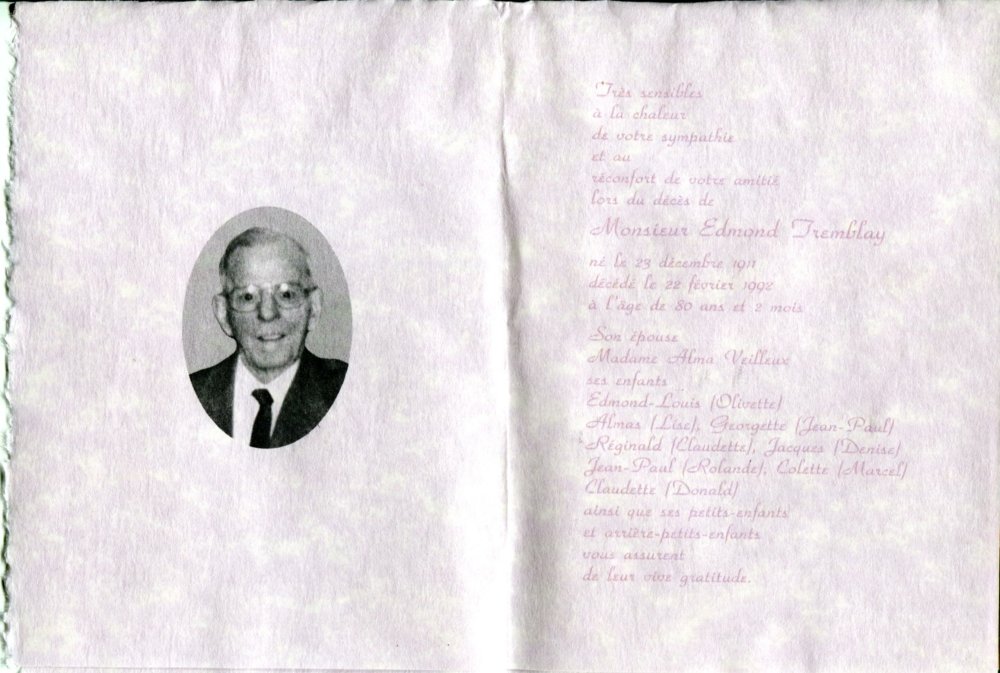 Très sensibles
à la chaleur
de votre sympathie
et au
réconfort de votre amitié
lors du décès de
Monsieur Edmond Tremblay
né le 23 décembre 1911
décédé le 22 février 1992
à l'âge de 80 ans et 2 mois
Son épouse
Madame Alma Veilleux
ses enfants
Edmond-Louis (Olivette)
Almas (Lise), Georgette (Jean-Paul)
Réginald (Claudette), Jacques (Denise)
Jean-Paul (Rolande), Colette (Marcel)
Claudette (Donald)
ainsi que ses petits-enfants
et arrière-petits-enfants
vous assurent
de leur vive gratitude.